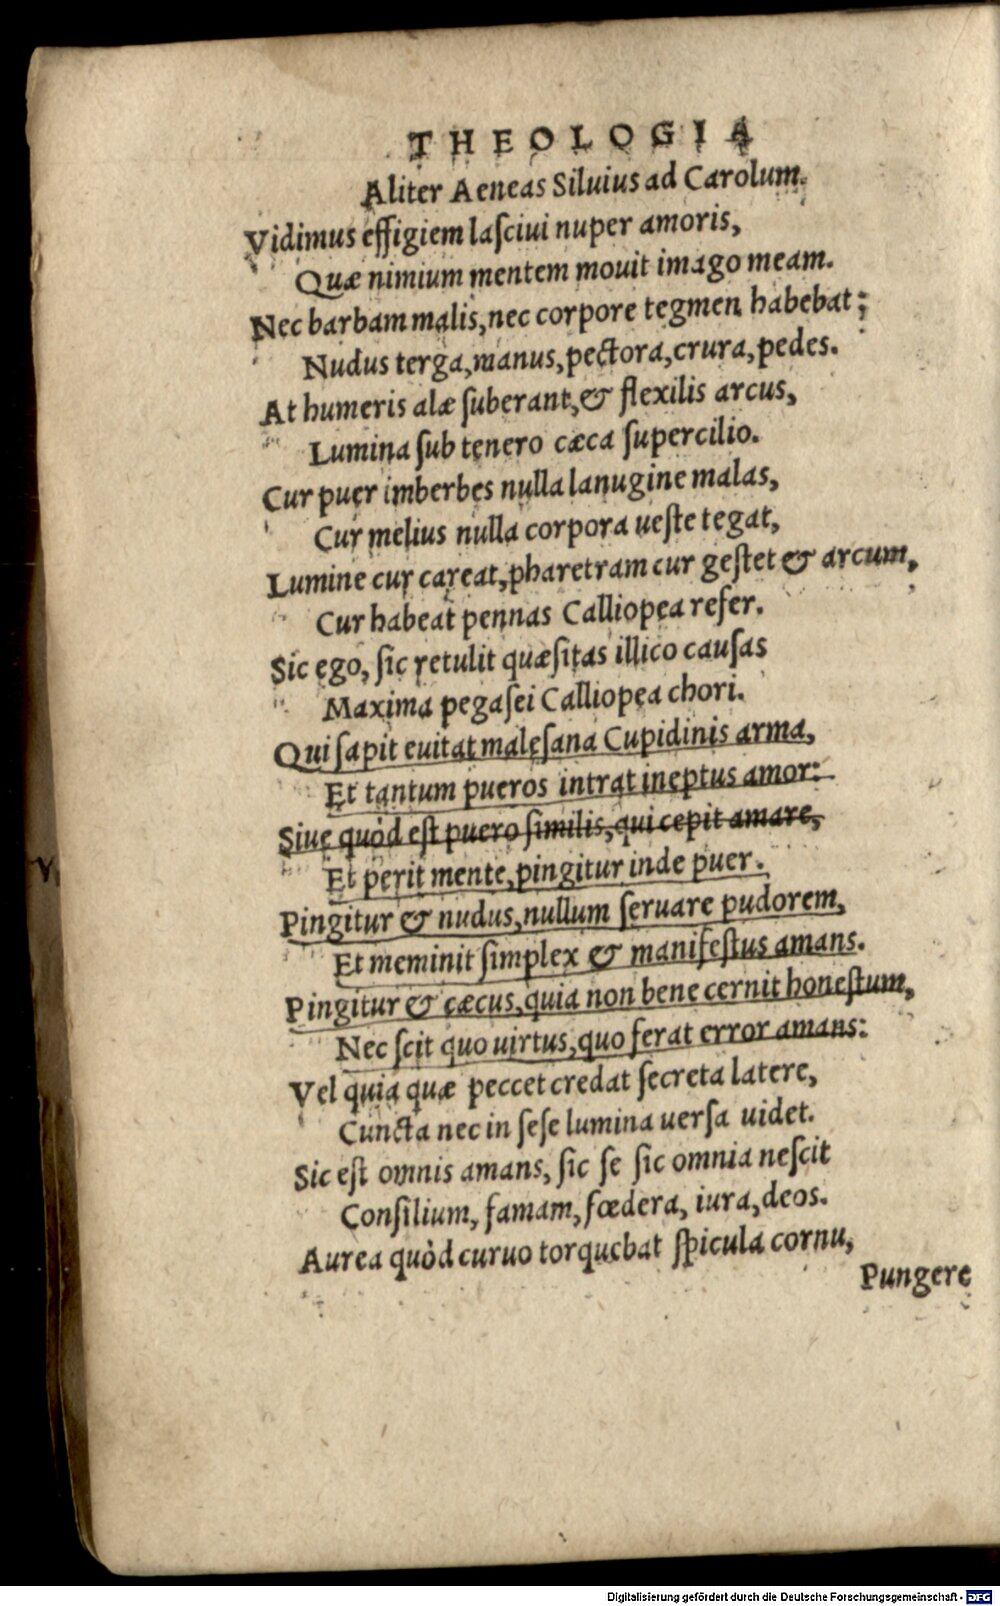 THEOLOGIA
Aliter Aeneas Siluius ad Carolum.
Vidimus effigiem laſciui nuper amoris,
Quæ nimium mentem mouit imago meam.
Nec barbam malis, nec corpore tegmen habebat;
Nudus terga, manus, pectora, crura, pedes.
At humeris alæ ſuberant, & flexilis arcus,
Lumina ſub tenero cæca ſupercilio.
Cur puer imberbes nulla lanugine malas,
Cur melius nulla corpora ueſte tegat,
Lumine cur careat, pharetram cur geſtet & arcum,
Cur habeat pennas Calliopea refer.
Sic ego, ſic retulit quæſitas illico cauſas
Maxima pegaſei Calliopea chori.
Qui ſapit euitat maleſana Cupidinis arma,
Et tantum pueros intrat ineptus amor:
Siue quòd eſt puero ſimilis, qui cepit amare,
Et perit mente, pingitur inde puer.
Pingitur & nudus, nullum ſeruare pudorem,
Et meminit ſimplex & manifeſtus amans.
Pingitur & cæcus, quia non bene cernit honeſtum,
Nec ſcit quo uirtus, quo ferat error amans:
Vel quia quæ peccet credat ſecreta latere,
Cuncta nec in ſeſe lumina uerſa uidet.
Sic eſt omnis amans, ſic ſe ſic omnia neſcit
Conſilium, famam, fœdera, iura, deos.
Aurea quòd curuo torquebat ſpicula cornu,
Pungere
Digitalisierung gefördert durch die Deutsche Forschungsgemeinschaft - DFG